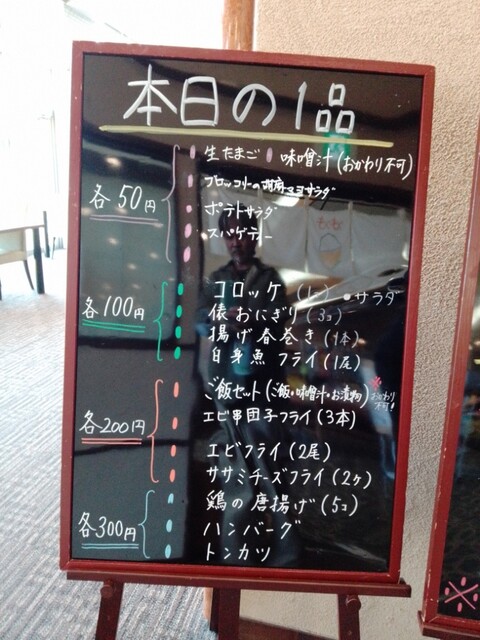 本日の1品
各50円
生たまご 味噌汁(おかわり不可)
ブロッコリーの胡麻マヨサラダ
ポテトサラダ
スパゲティー
各100円
コロッケ (1ヶ) ・サラダ
俵おにぎり(3コ)
揚げ春巻き(1本)
白身魚フライ(1尾)
各200円
ご飯セット(ご飯・味噌汁・お漬物) ※おかわり不可!
エビ串団子フライ(3本)
エビフライ(2尾)
ササミチーズフライ(2ヶ)
各300円
鶏の唐揚げ(5コ)
ハンバーグ
トンカツ
※